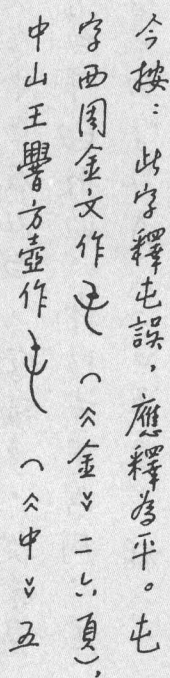 今按：此字釋屯誤，應釋為平。屯
字西周金文作（《金》二六頁），
中山王方壺作（《中》五